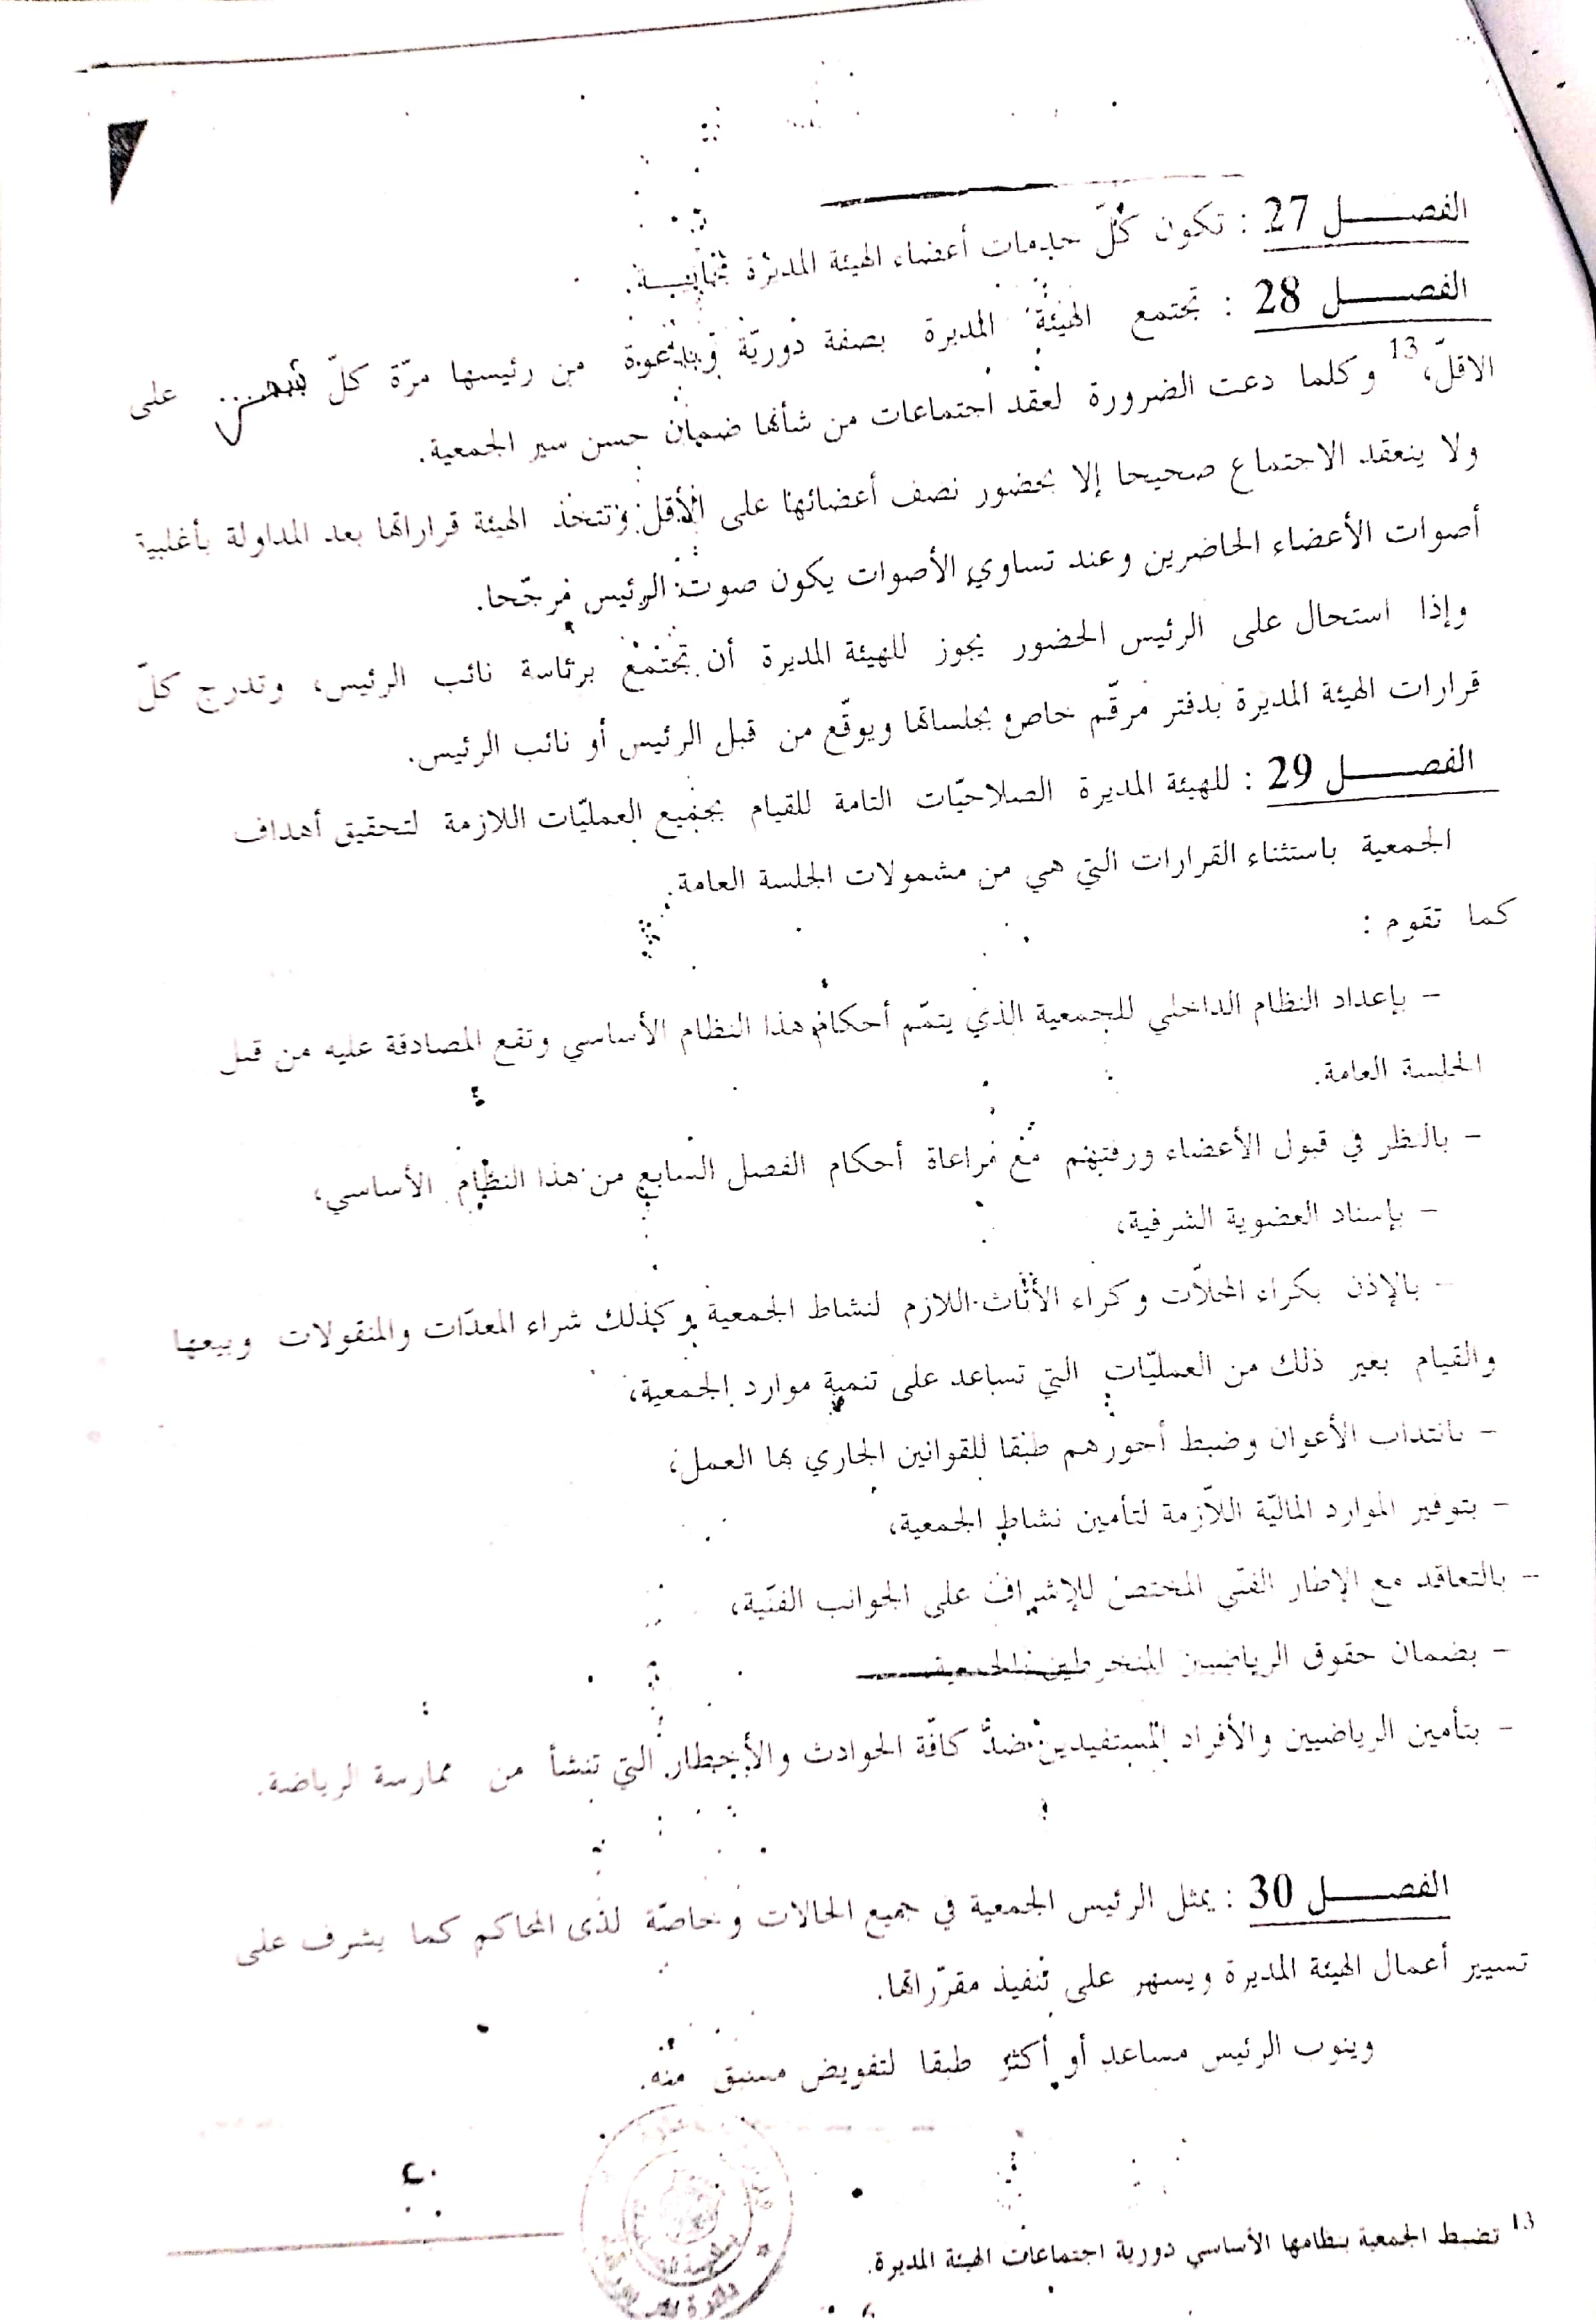 الفصـــل 27 : تكون كلّ خدمات أعضاء الهيئة المديرة مجّانيـــة.
الفصـــل 28 : تجتمع الهيئة المديرة بصفة دوريّة وبدعوة من رئيسها مرّة كلّ شهر على
الاقلّ،13 وكلما دعت الضرورة لعقد اجتماعات من شأنها ضمان حسن سير الجمعية.
ولا ينعقد الاجتماع صحيحا إلا بحضور نصف أعضائها على الأقل وتتخذ الهيئة قراراتها بعد المداولة بأغلبية
أصوات الأعضاء الحاضرين وعند تساوي الأصوات يكون صوت الرئيس مرجّحا.
وإذا استحال على الرئيس الحضور يجوز للهيئة المديرة أن تجتمع برئاسة نائب الرئيس، وتدرج كلّ
قرارات الهيئة المديرة بدفتر مرقّم خاص بجلساتها ويوقّع من قبل الرئيس أو نائب الرئيس.
الفصـــل 29 : للهيئة المديرة الصلاحيّات التامة للقيام بجميع العمليّات اللازمة لتحقيق أهداف
الجمعية باستثناء القرارات التي هي من مشمولات الجلسة العامة.
كما تقوم :
– بإعداد النظام الداخلي للجمعية الذي يتمّم أحكام هذا النظام الأساسي وتقع المصادقة عليه من قبل
الجلسة العامة.
– بالنظر في قبول الأعضاء ورفتهم مع مراعاة أحكام الفصل السابع من هذا النظام الأساسي،
– بإسناد العضوية الشرفية،
– بالإذن بكراء المحلاّت وكراء الأثاث اللازم لنشاط الجمعية وكذلك شراء المعدّات والمنقولات وبيعها
والقيام بغير ذلك من العمليّات التي تساعد على تنمية موارد الجمعية،
– بانتداب الأعوان وضبط أجورهم طبقا للقوانين الجاري بها العمل،
– بتوفير الموارد الماليّة اللاّزمة لتأمين نشاط الجمعية،
– بالتعاقد مع الإطار الفنّي المختص للإشراف على الجوانب الفنّية،
– بضمان حقوق الرياضيين المنخرطين بالجمعية
– بتأمين الرياضيين والأفراد المستفيدين ضدّ كافّة الحوادث والأخطار التي تنشأ من ممارسة الرياضة.
الفصـــل 30 : يمثل الرئيس الجمعية في جميع الحالات وخاصّة لدى المحاكم كما يشرف على
تسيير أعمال الهيئة المديرة ويسهر على تنفيذ مقرّراتها.
وينوب الرئيس مساعد أو أكثر طبقا لتفويض مسبق منه.
13 تضبط الجمعية بنظامها الأساسي دورية اجتماعات الهيئة المديرة.